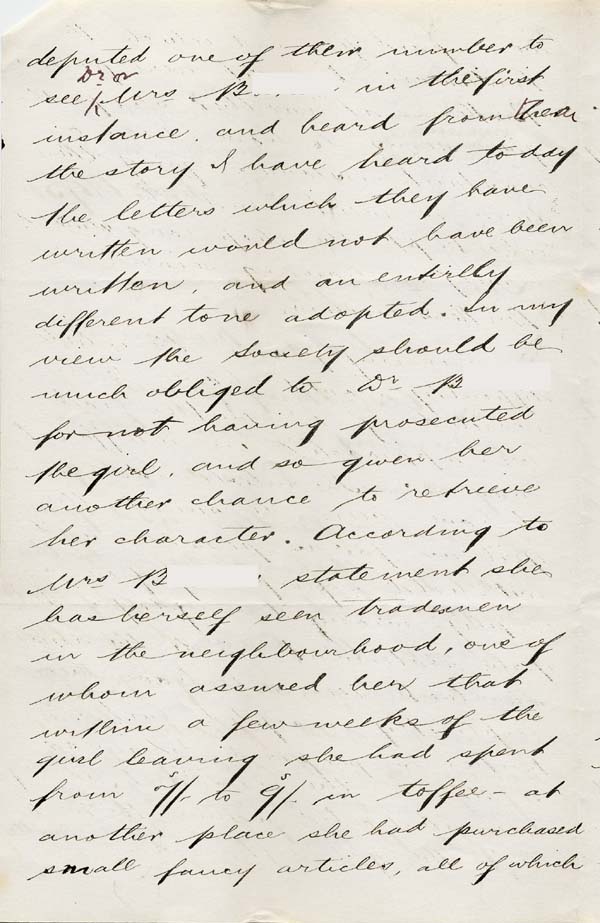 deputed one of their number to
see Dr or Mrs B in the first
instance, and heard from them
the story I have heard today
the letters which they have
written would not have been
written, and an entirely
different tone adopted. In my
view the Society should be
much obliged to Dr B
for not having prosecuted
the girl, and so given her
another chance to retrieve
her character. According to
Mrs B statement she
has herself seen tradesmen
in the neighbourhood, one of
whom assured her that
within a few weeks of the
girl leaving she had spent
from 7s/. to 9s/. in toffee - at
another place she had purchased
small fancy articles, all of which